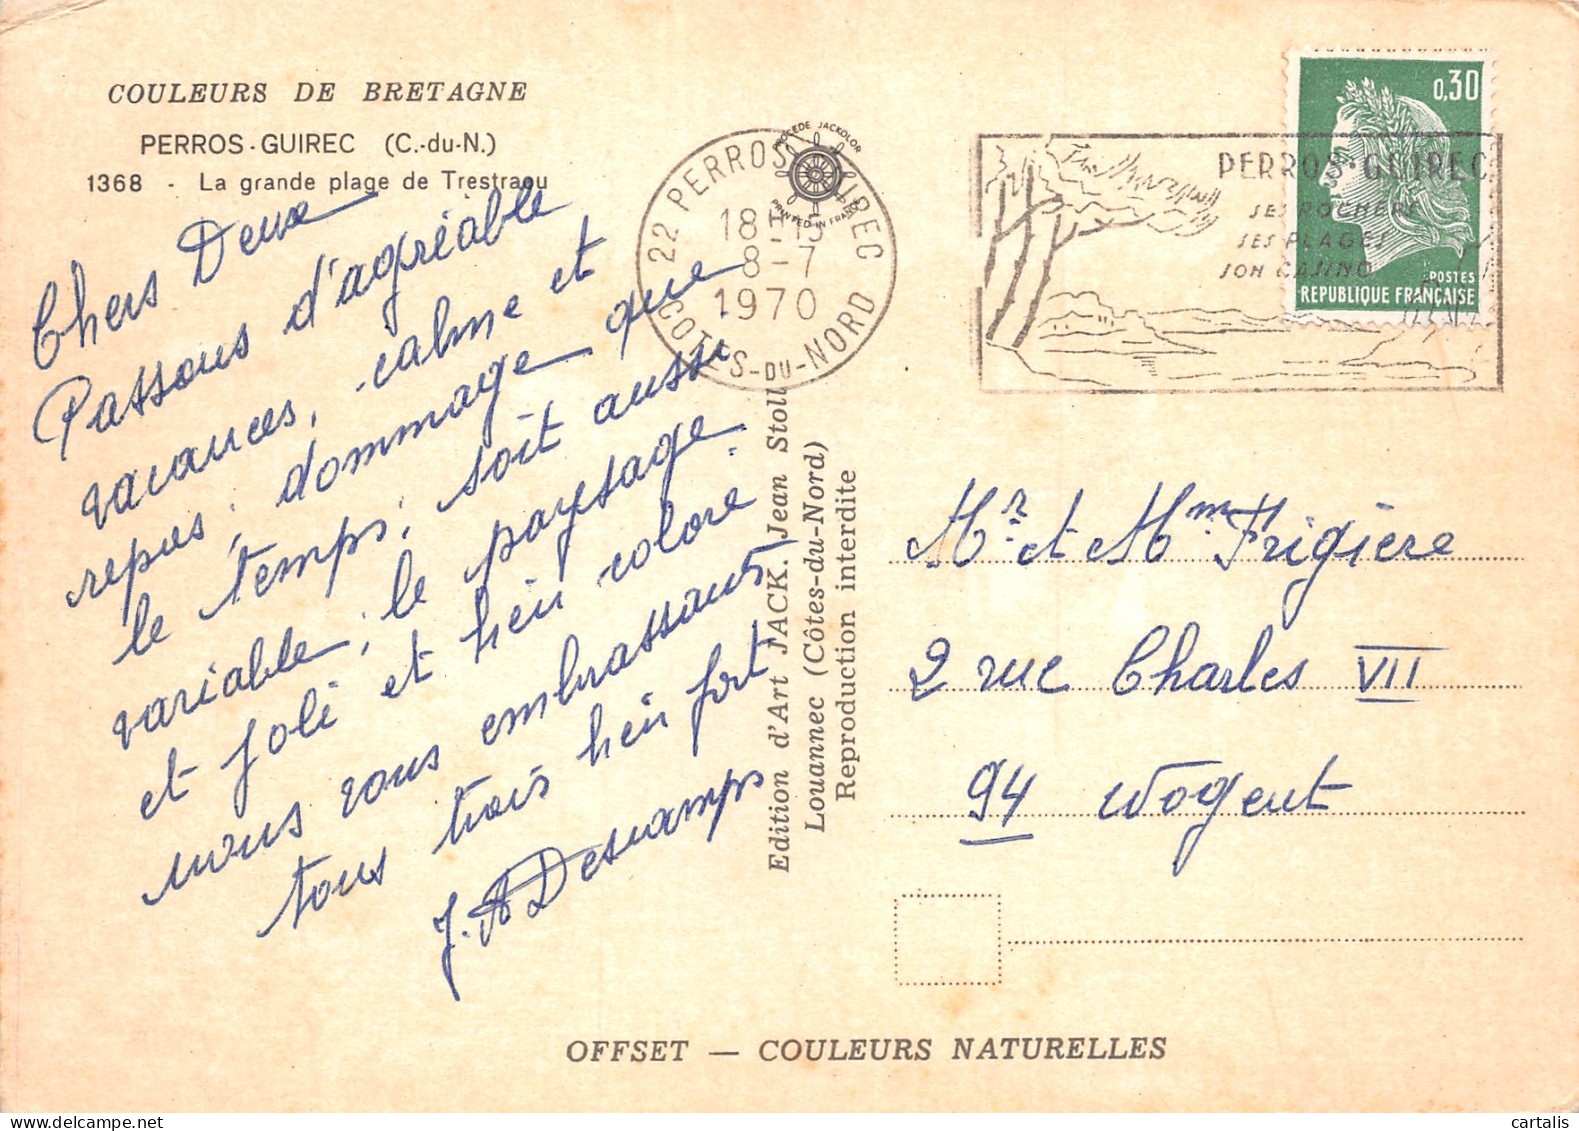 COULEURS DE BRETAGNE
PERROS-GUIREC (C.-du-N.)
1368 - La grande plage de Trestraou
Chers Deux
Passons d'agréable
vacances, calme et
repos, dommage que
le temps, soit aussi
variable, le paysage
et joli et bien coloré
nous vous embrassons
tous trois bien fort
J. A Descamps
PROCEDE JACKOLOR
PRINTED IN FRANCE
22 PERROS GUIREC
18H15
8-7
1970
COTES-DU-NORD
PERROS-GUIREC
SES ROCHERS
SES PLAGES
SON CASINO
0,30
POSTES
REPUBLIQUE FRANÇAISE
Edition d'Art JACK. Jean Stoll
Louannec (Côtes-du-Nord)
Reproduction interdite
Mr et Mme Frigière
2 rue Charles VII
94 Nogent
OFFSET — COULEURS NATURELLES
cartalis